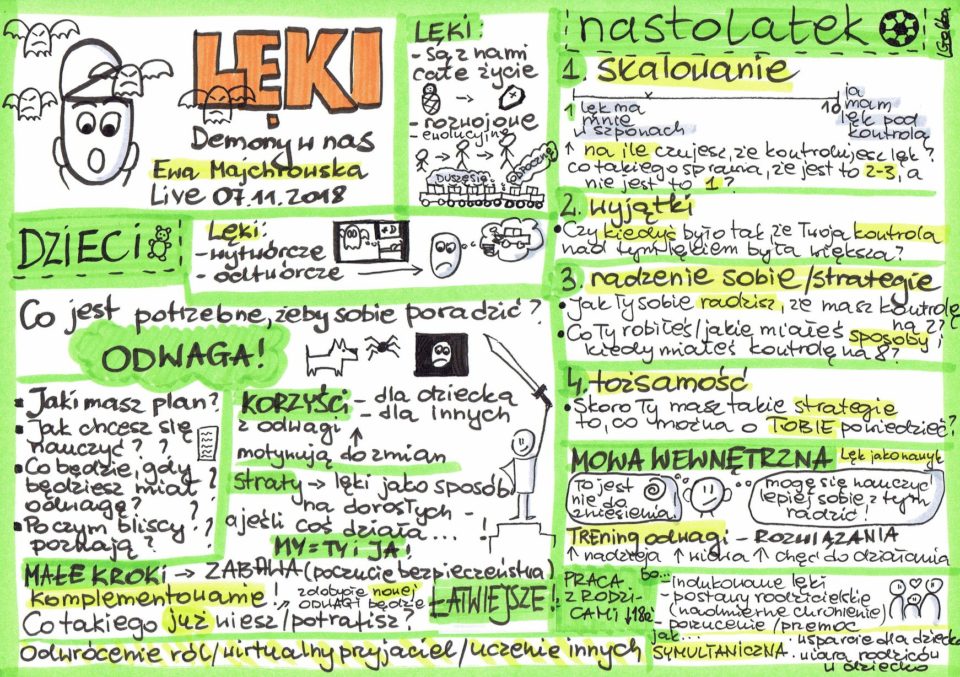 LĘKI
Demony w nas
Ewa Majchrowska
Live 07.11.2018
LĘKI:
- są z nami
całe życie
- rozwojowe
- ewolucyjne
DUSZĘ SIĘ
ODPOCZNĘ
DZIECI
Lęki:
- wytwórcze
- odtwórcze
Co jest potrzebne, żeby sobie poradzić?
ODWAGA!
• Jaki masz plan?
• Jak chcesz się
nauczyć? ?
• Co będzie, gdy
będziesz miał ?
odwagę? ?
• Po czym bliscy ?
poznają? ?
KORZYŚCI - dla dziecka
z odwagi - dla innych
motywują do zmian
Straty → lęki jako sposób
na dorosłych -
a jeśli coś działa... - !
MY = TY i JA!
MAŁE KROKI → ZABAWA (poczucie bezpieczeństwa)
Komplementowanie! zdobycie nowej
ODWAGI będzie ŁATWIEJSZE!
Co takiego już wiesz/potrafisz?
Odwrócenie ról/wirtualny przyjaciel/uczenie innych
nastolatek
1. Skalowanie
1 10
lęk ma
mnie
w szponach
ja
mam
lęk pod
kontrolą
↑ na ile czujesz, że kontrolujesz lęk?
Co takiego sprawia, że jest to 2-3, a
nie jest to 1?
2. wyjątki
• Czy kiedyś było tak, że Twoja kontrola
nad tym lękiem była większa?
3. radzenie sobie/strategie
• Jak Ty sobie radzisz, że masz kontrolę
na 2?
• Co Ty robiłeś/jakie miałeś sposoby,
kiedy miałeś kontrolę na 8?
4. tożsamość
• Skoro Ty masz takie strategie
to, co można o TOBIE powiedzieć?
MOWA WEWNĘTRZNA Lęk jako nawyk
To jest
nie do
zniesienia
mogę się nauczyć
lepiej sobie z tym
radzić!
TREning odwagi - ROZWIĄZANIA
↑ nadzieja ↑ wiara ↑ chęć do działania
PRACA
Z RODZI-
CAMI ↓18r.
bo... - indukowane lęki
- postawy rodzicielskie
(nadmierne chronienie)
- porzucenie/przemoc
jak...
SYMULTANICZNA
• wsparcie dla dziecka
• wiara rodziców
w dziecko